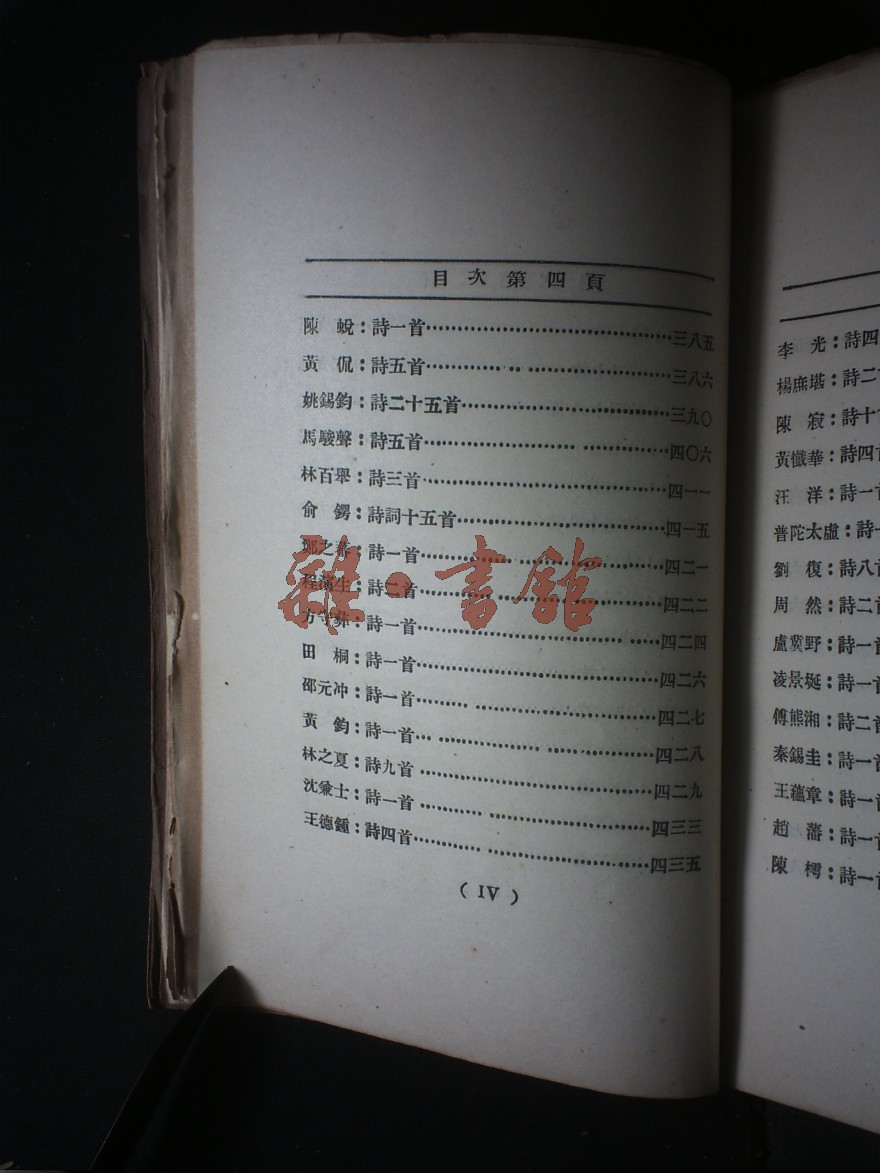 目次第四頁
陳 蛻：詩一首……三八五
黃 侃：詩五首……三八六
姚錫鈞：詩二十五首……三九〇
馬駿聲：詩五首……四〇六
林百舉：詩三首……四一一
俞 鍔：詩詞十五首……四一五
鄭之蕃：詩一首……四二一
程演生：詩二首……四二二
方守彝：詩一首……四二四
田 桐：詩一首……四二六
邵元冲：詩一首……四二七
黃 鈞：詩一首……四二八
林之夏：詩九首……四二九
沈兼士：詩一首……四三三
王德鍾：詩四首……四三五
(IV)
雜·書館
李 光：詩四
楊庶堪：詩二
陳 寂：詩十
黃懺華：詩四首
汪 洋：詩一首
普陀太虛：詩一
劉 復：詩八首
周 然：詩二首
盧冀野：詩一首
凌景埏：詩一首
傅熊湘：詩二首
秦錫圭：詩一首
王蘊章：詩一首
趙 藩：詩一首
陳 樗：詩一首